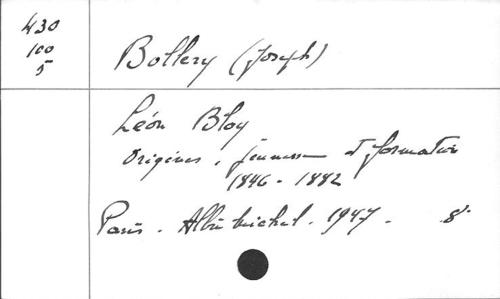 430
100
5
Bollery (Joseph)
Léon Bloy
Origines, jeunesse et formation
1846 - 1882
Paris. Albin Michel. 1947. 8°